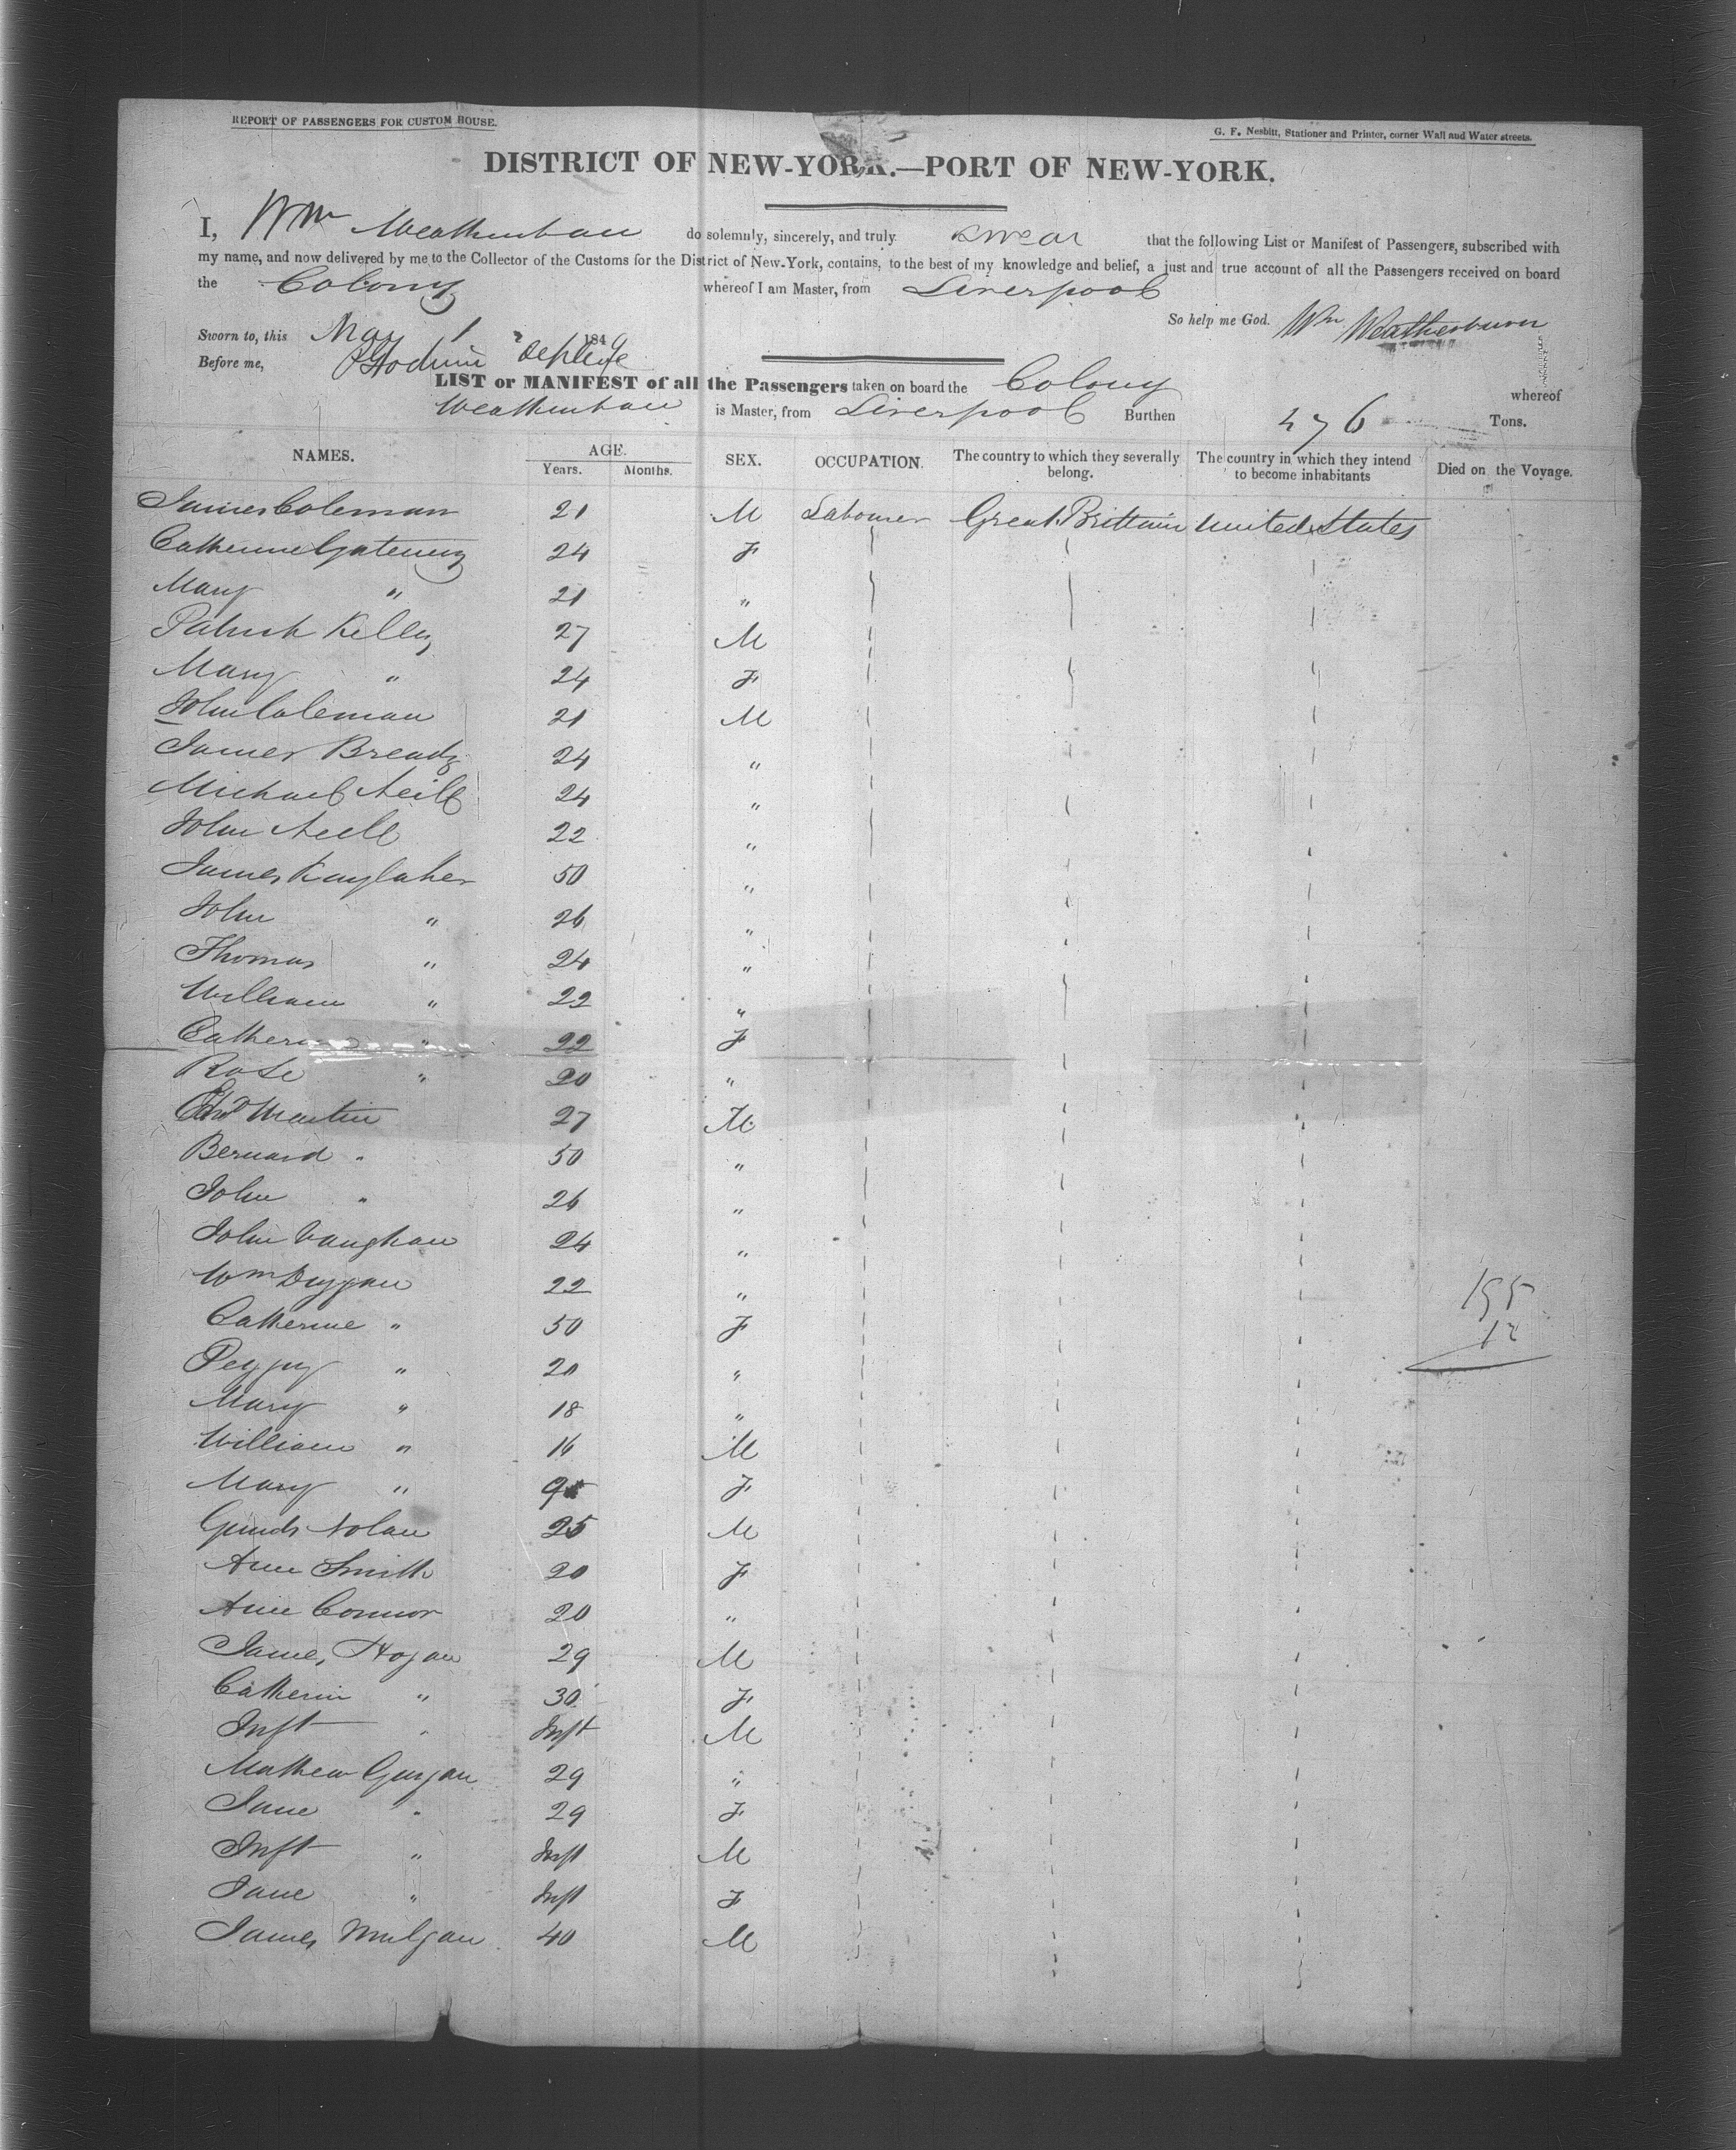 REPORT OF PASSENGERS FOR CUSTOM HOUSE.
G. F. Nesbitt, Stationer and Printer, corner Wall and Water streets.
DISTRICT OF NEW-YORK.—PORT OF NEW-YORK.
I, Wm do solemnly, sincerely, and truly swear that the following List or Manifest of Passengers, subscribed with
my name, and now delivered by me to the Collector of the Customs for the District of New-York, contains, to the best of my knowledge and belief, a just and true account of all the Passengers received on board
the Colony whereof I am Master, from Liverpool
So help me God. Wm Weatherburn
Sworn to, this May 1 1849
Before me,
LIST or MANIFEST of all the Passengers taken on board the Colony whereof
is Master, from Liverpool Burthen 476 Tons.
NAMES. AGE. Years. Months. SEX. OCCUPATION. The country to which they severally belong. The country in which they intend to become inhabitants Died on the Voyage.
James Coleman 21 M Labourer Great Brittain United States
Catherine 24 F
Mary " 21 "
Patrick Kelly 27 M
Mary " 24 F
John Coleman 21 M
James 24 "
Michael Neill 24 "
John Neill 22 "
James 50 "
John " 26 "
Thomas " 24 "
William " 22 "
Catherine " 22 F
Rose " 20 "
Martin 27 M
Bernard " 50 "
John " 26 "
John Vaughan 24 "
Wm Duggan 22 "
Catherine " 50 F
Peggy " 20 "
Mary " 18 "
William " 16 M
Mary " 9 F
Nolan 25 M
Ann Smith 20 F
Ann Connor 20 "
James Hogan 29 M
Catherin " 30 F
Inft " Inft M
Mathew Gurgan 29 "
Jane " 29 F
Inft " Inft M
Jane " Inft F
James Mulgan 40 M
12